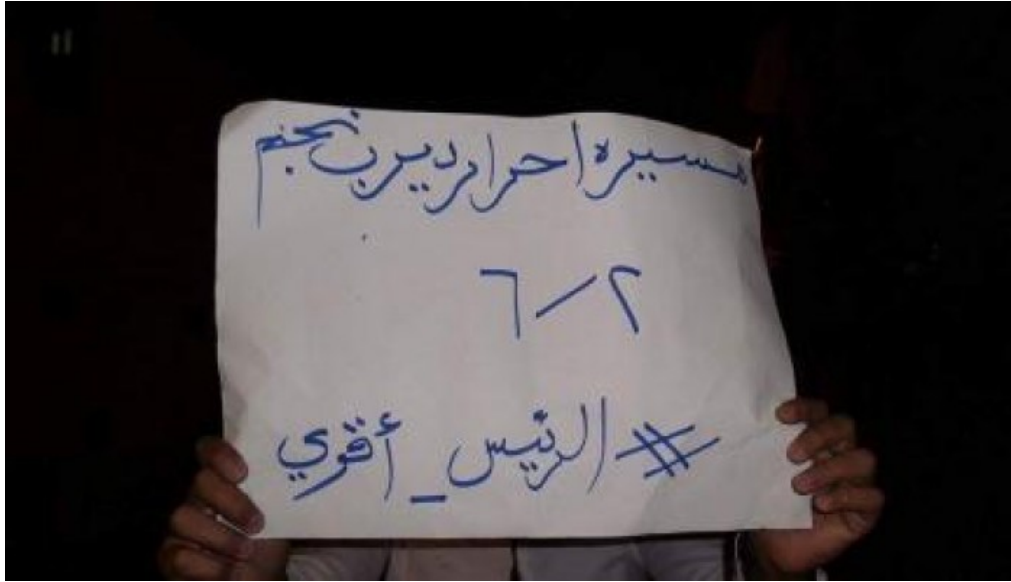 مسيره احرار ديرب نجم
٢ / ٦
# الرئيس _ أقوي